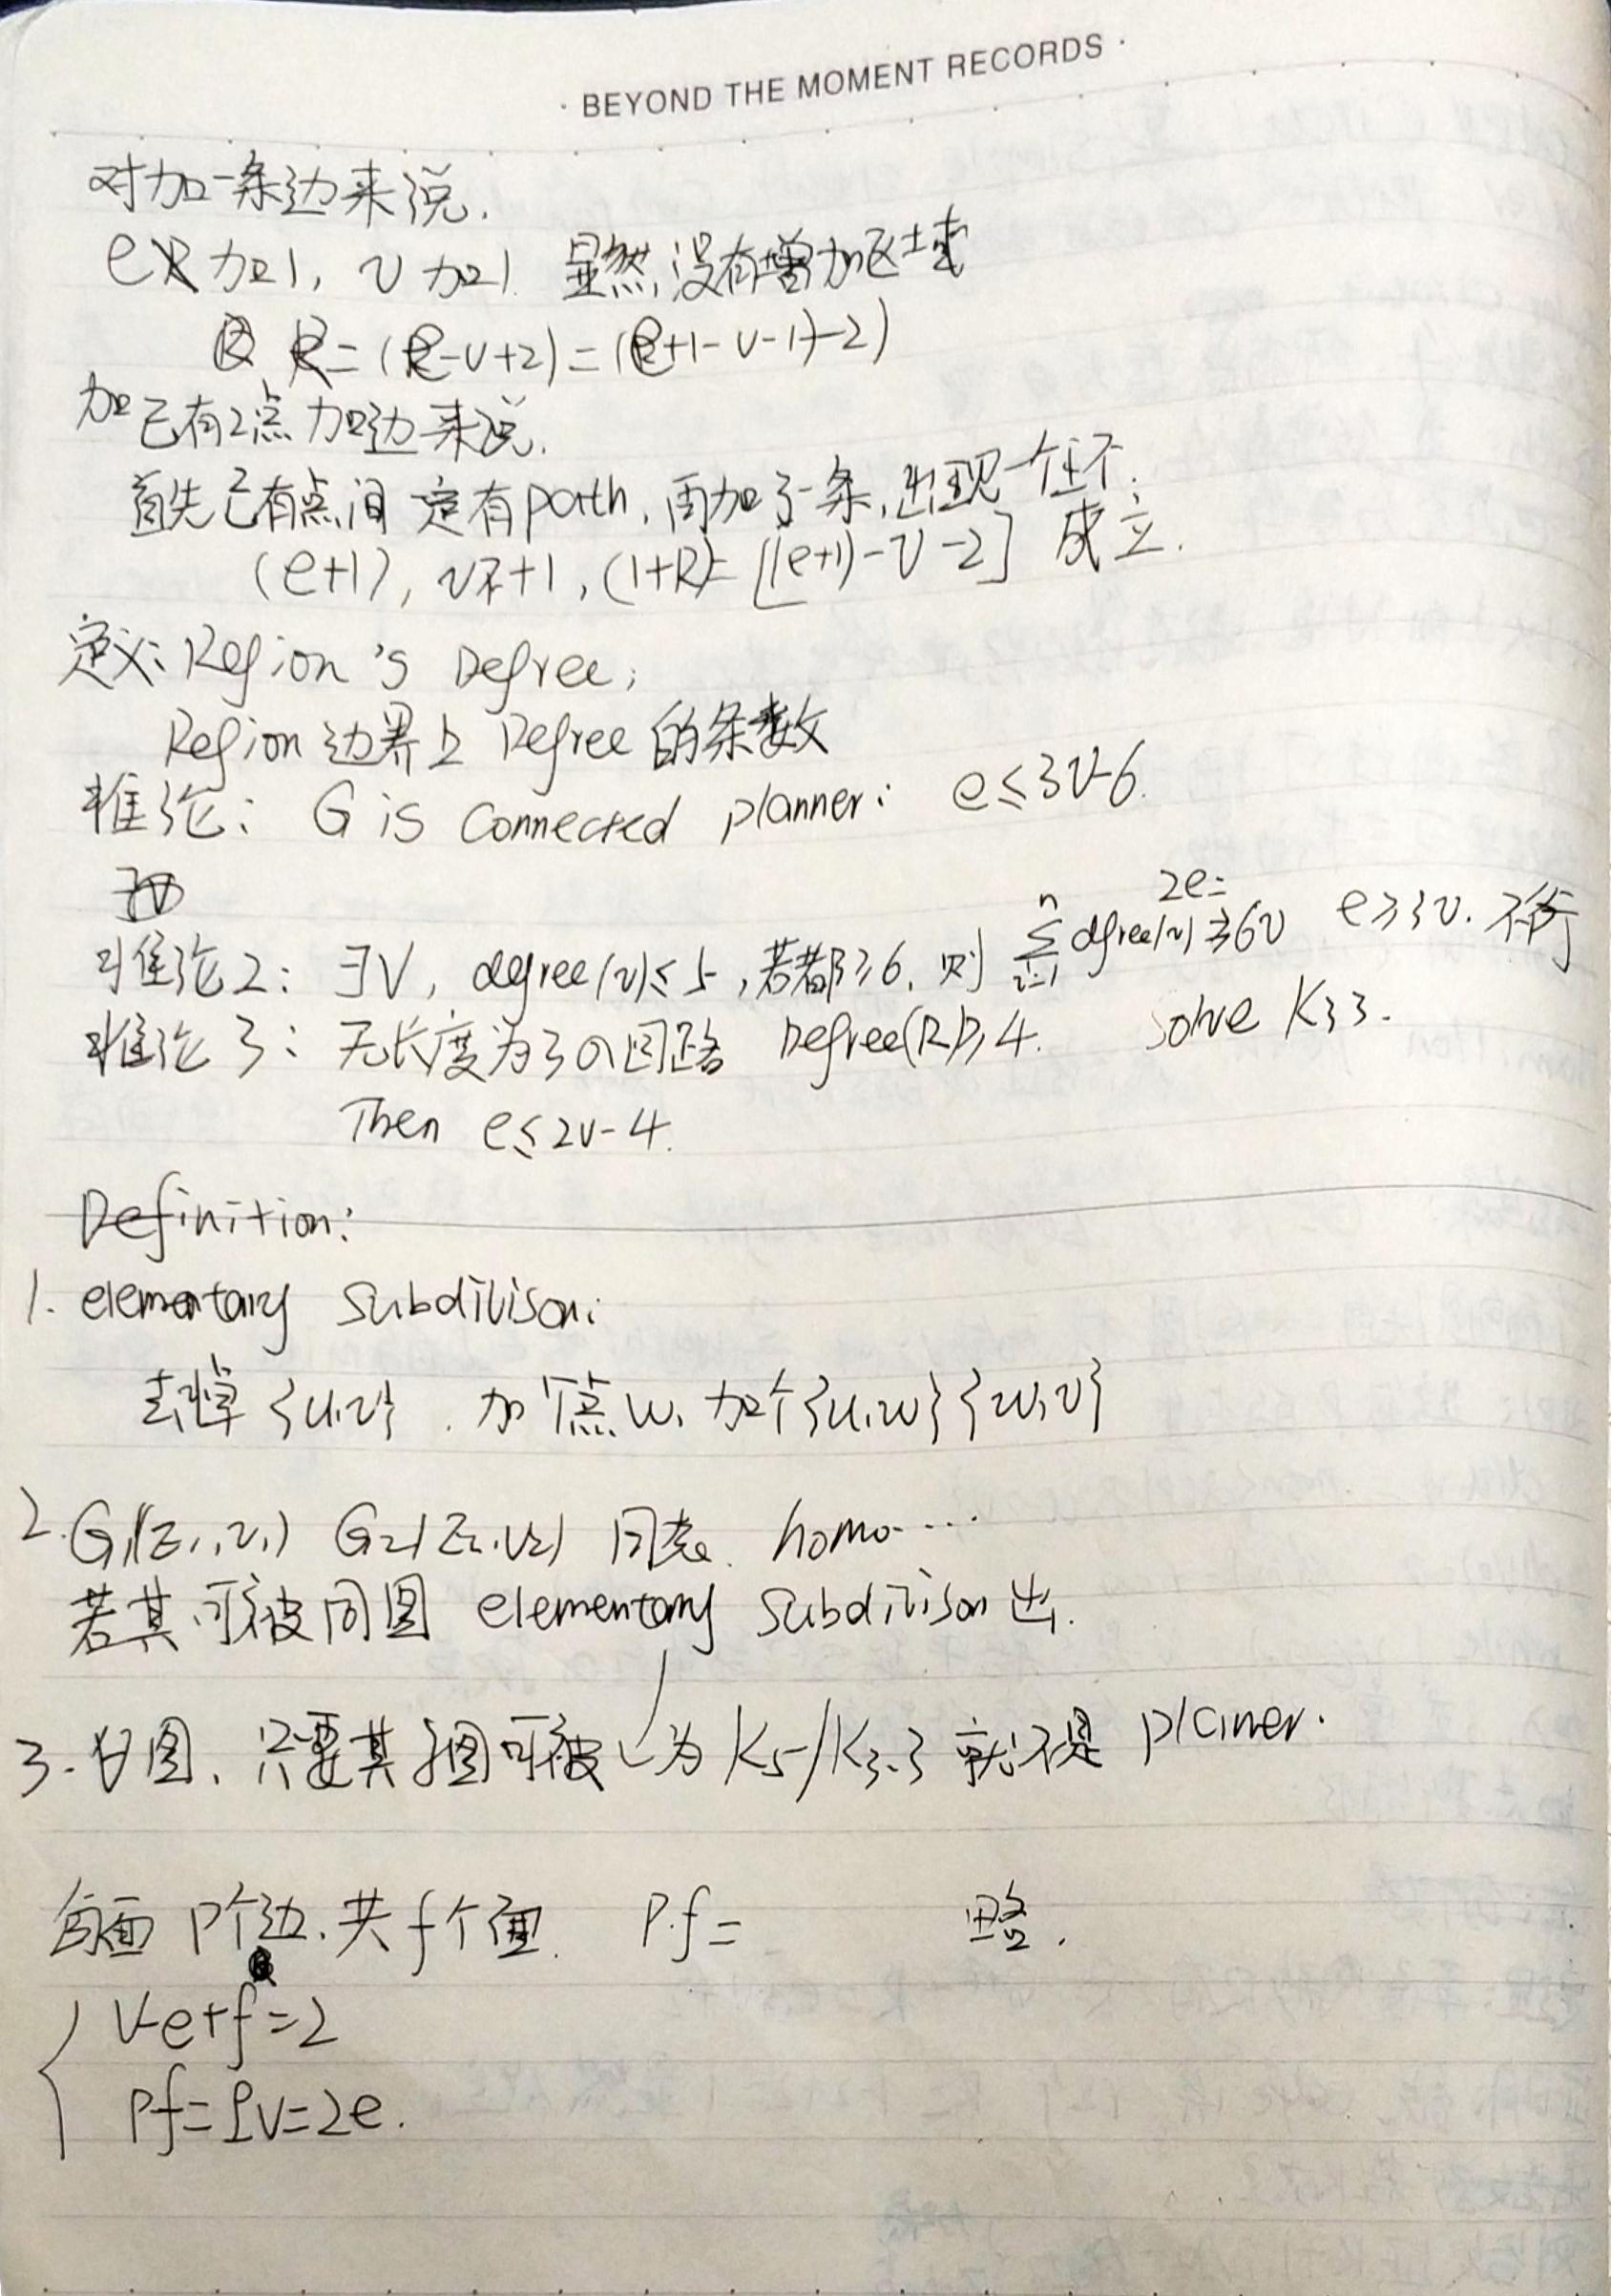 · BEYOND THE MOMENT RECORDS ·
对加一条边来说.
e 加1, v 加1. 显然,没有增加区域
R = (e-v+2) = (e+1-v-1+2)
加已有2点加边来说.
首先已有点间 定有path, 再加了一条,出现一个
(e+1), v不+1, (1+R)= [(e+1)-v-2] 成立.
定义: Region's Degree;
Region 边界上 Degree 的条数
推论: G is connected planner: e≤3v-6.
推论2: ∃V, degree(v)≤5, 若都≥6, 则 2e= \sum_{i=1}^{n} dgree(v) ≥6v e≥3v. 不行
推论3: 无长度为3的回路 Degree(R)≥4. solve K33.
Then e≤2v-4.
Definition:
1. elementary subdivison:
去掉 {u,v}. 加个点w, 加个{u,w}{w,v}
2. G1(E1,v1) G2(E2,v2) 同态. homo....
若其可被同图 elementary subdivison 出.
3. ∀图, 只要其子图可被 为 K5/K3,3 就不是 planer.
每面 P个边, 共f个面. P.f=
{ v-e+f=2
Pf=lv=2e.